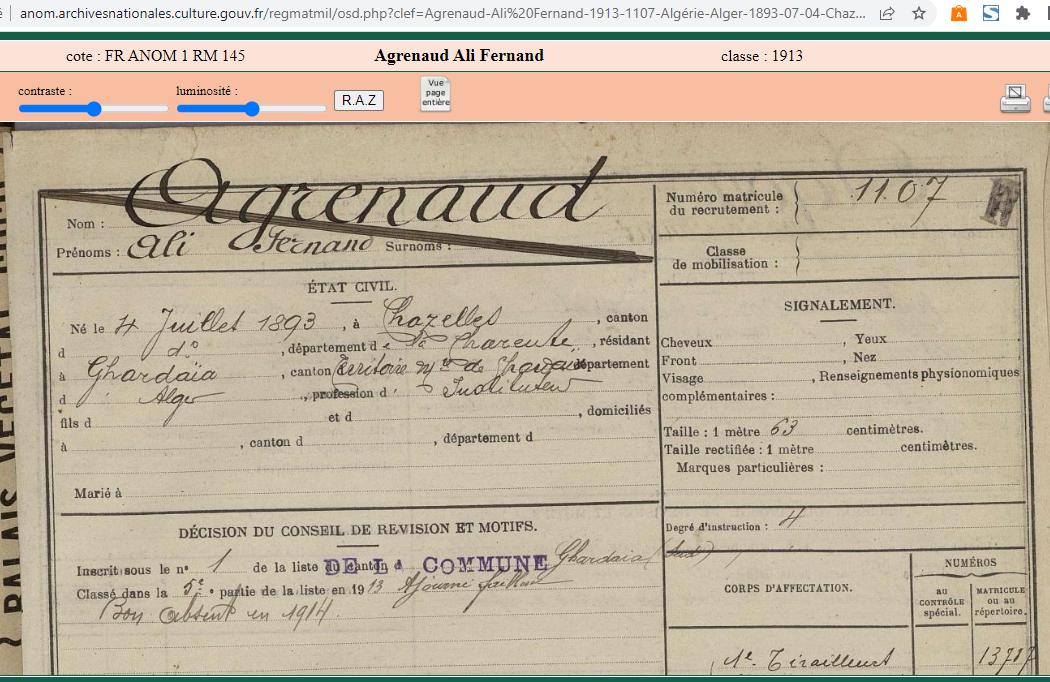 anom.archivesnationales.culture.gouv.fr/regmatmil/osd.php?clef=Agrenaud-Ali%20Fernand-1913-1107-Algérie-Alger-1893-07-04-Chaz...
cote : FR ANOM 1 RM 145 Agrenaud Ali Fernand classe : 1913
contraste : luminosité : R.A.Z
Vue
page
entière
Agrenaud
Nom :
Prénoms : Ali Fernand Surnoms :
Numéro matricule
du recrutement : 1107
Classe
de mobilisation :
ÉTAT CIVIL.
Né le 4 Juillet 1893, à Chazelles, canton
d d°, département de la Charente, résidant
à Ghardaïa, canton Territoire de département
d Alger, profession d Instituteur
fils d et d, domiciliés
à, canton d, département d
Marié à
SIGNALEMENT.
Cheveux, Yeux
Front, Nez
Visage, Renseignements physionomiques
complémentaires :
Taille : 1 mètre 63 centimètres.
Taille rectifiée : 1 mètre centimètres.
Marques particulières :
Degré d'instruction : 4
DÉCISION DU CONSEIL DE REVISION ET MOTIFS.
Inscrit sous le n° 1 de la liste DE LA COMMUNE Ghardaïa (Sud)
Classé dans la 5e partie de la liste en 1913 Ajourné faiblesse
Bon absent en 1914
CORPS D'AFFECTATION.
NUMÉROS
au
CONTRÔLE
spécial.
MATRICULE
ou au
répertoire.
Tirailleurs 13717
PALAIS VÉGÉTAL